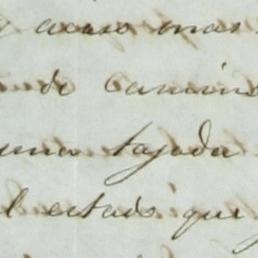 y acaso mas
de camino
una tajada
el estado que